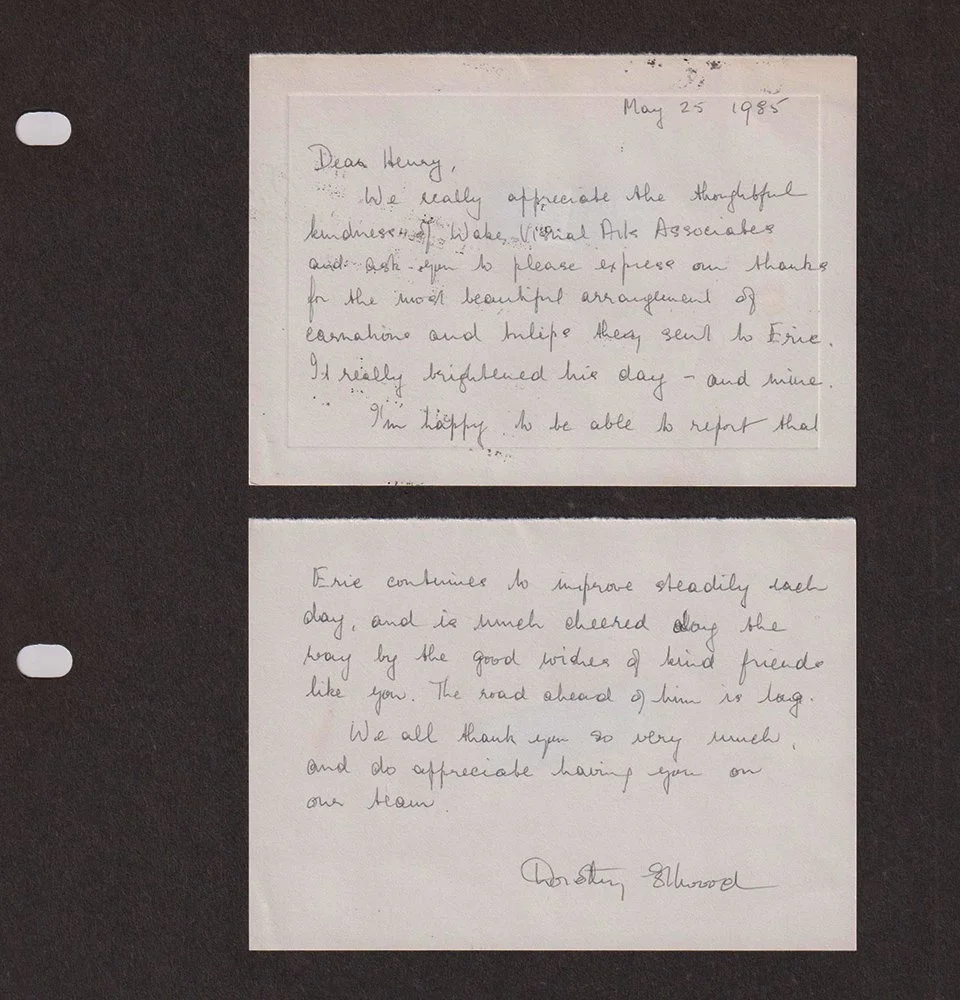 May 25 1985
Dear Henry,
We really appreciate the thoughtful
kindness of Wake Visual Arts Associates
and ask you to please express our thanks
for the most beautiful arrangement of
carnations and tulips they sent to Eric.
It really brightened his day – and mine.
I'm happy to be able to report that
Eric continues to improve steadily each
day, and is much cheered along the
way by the good wishes of kind friends
like you. The road ahead of him is long.
We all thank you so very much,
and do appreciate having you on
our team.
Dorothy Ellwood